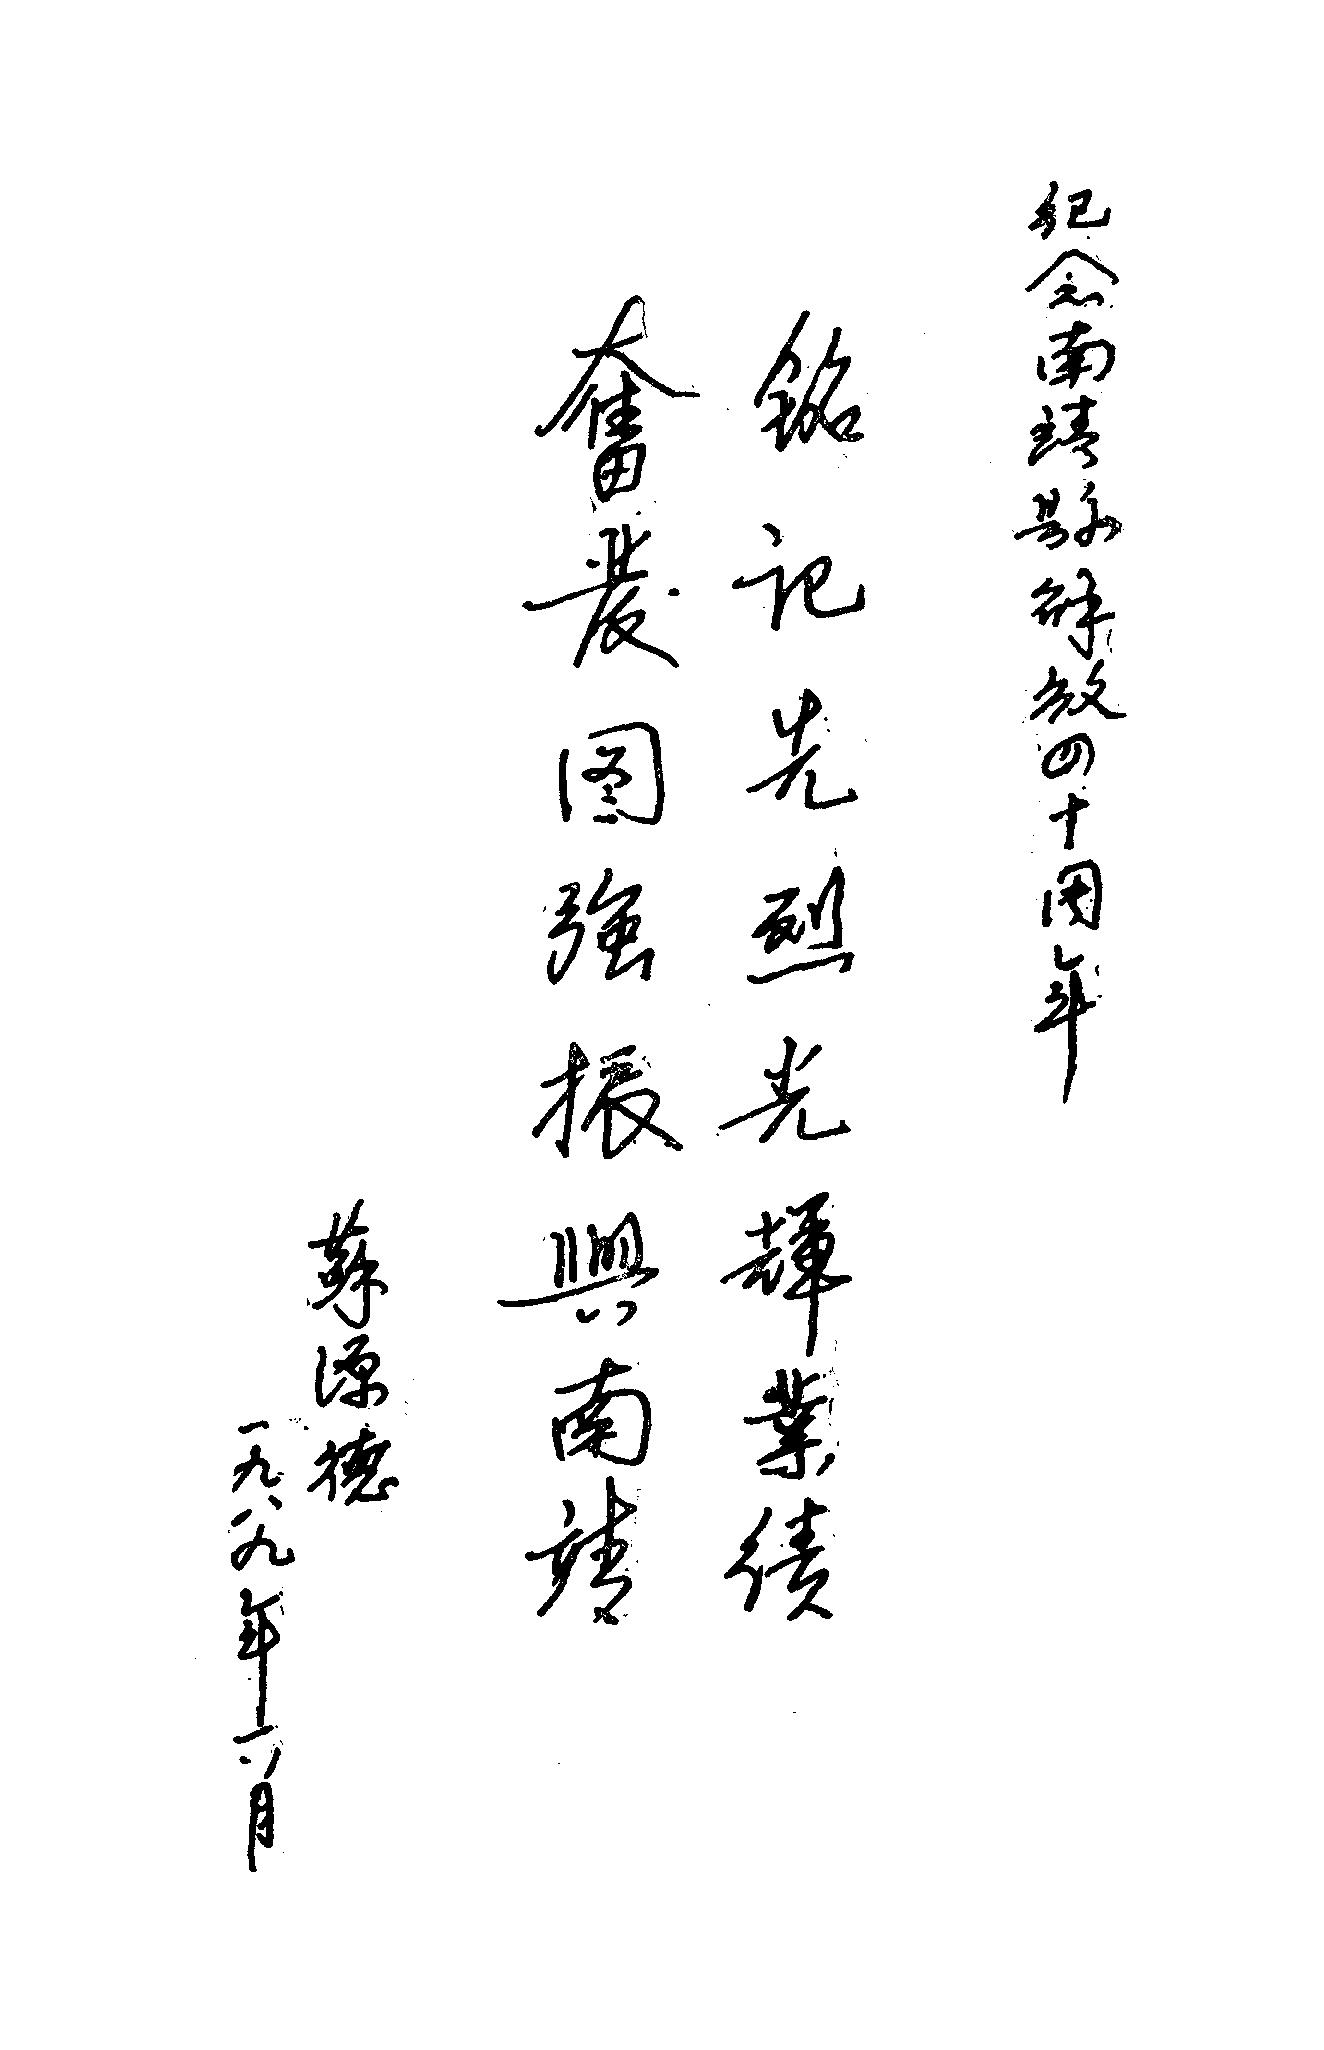 纪念南靖縣解放四十周年
銘记先烈光輝業绩
奮發图強振興南靖
蘇源德
一九八九年六月